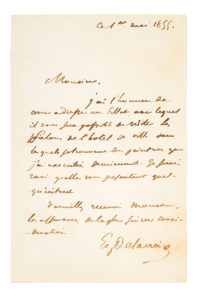 Ce 1er mai 1855.
Monsieur,
j'ai l'honneur de
vous adresser un billet avec lequel
il vous sera possible de visiter les
salons de l'hôtel de ville dans
lesquels se trouvent des peintures que
j'ai exécutées. Je serai
ravi qu'elles vous présentent quelqu'intérêt
Veuillez recevoir Monsieur,
les assurances de la plus sincère considération
Eug Delacroix